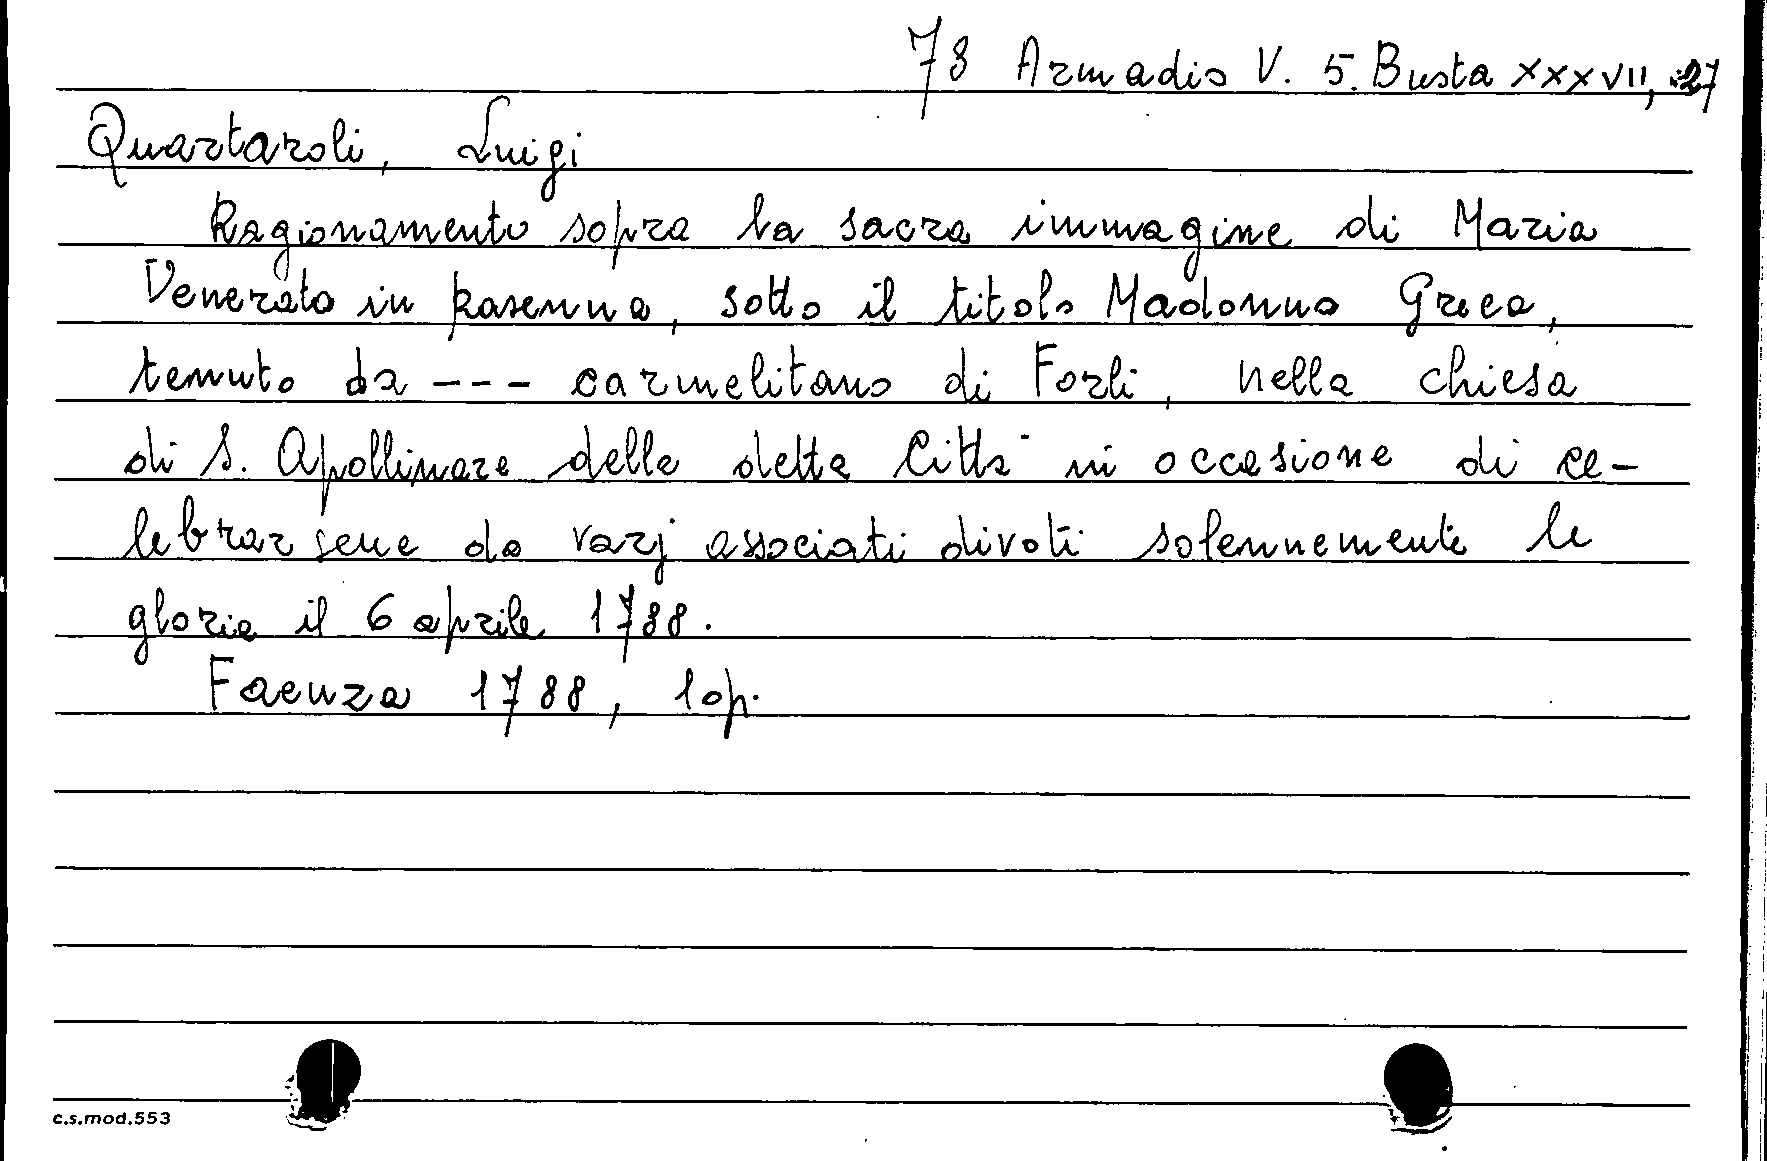 78 Armadio V. 5. Busta XXXVII, 27
Quartaroli, Luigi
Ragionamento sopra la sacra immagine di Maria
Venerata in Ravenna, sotto il titolo Madonna Greca,
tenuto da --- carmelitano di Forli, nella chiesa
di S. Apollinare della detta Città in occasione di ce-
lebrarsene da varj associati divoti solennemente le
glorie il 6 aprile 1788.
Faenza 1788, 1op.
c.s.mod.553